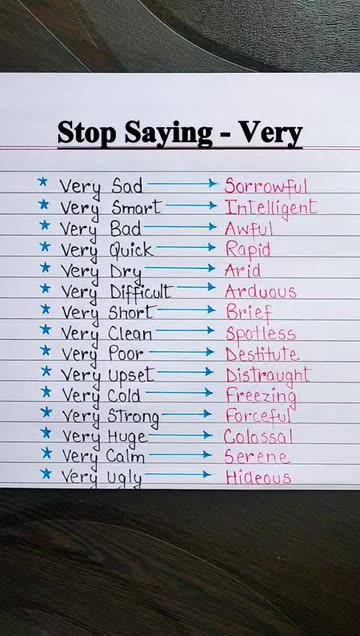 Stop Saying - Very
* Very Sad → Sorrowful
* Very Smart → Intelligent
* Very Bad → Awful
* Very Quick → Rapid
* Very Dry → Arid
* Very Difficult → Arduous
* Very Short → Brief
* Very Clean → Spotless
* Very Poor → Destitute
* Very Upset → Distraught
* Very Cold → Freezing
* Very Strong → Forceful
* Very Huge → Colossal
* Very Calm → Serene
* Very Ugly → Hideous